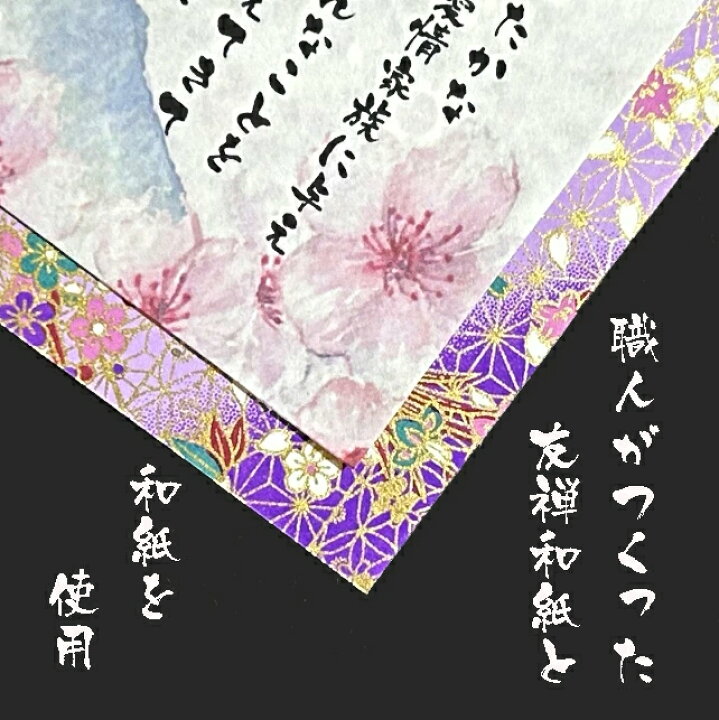 たかな
愛情 家族に与え
んなことを
えてきて
職人がつくった
友禅和紙と
和紙を
使用